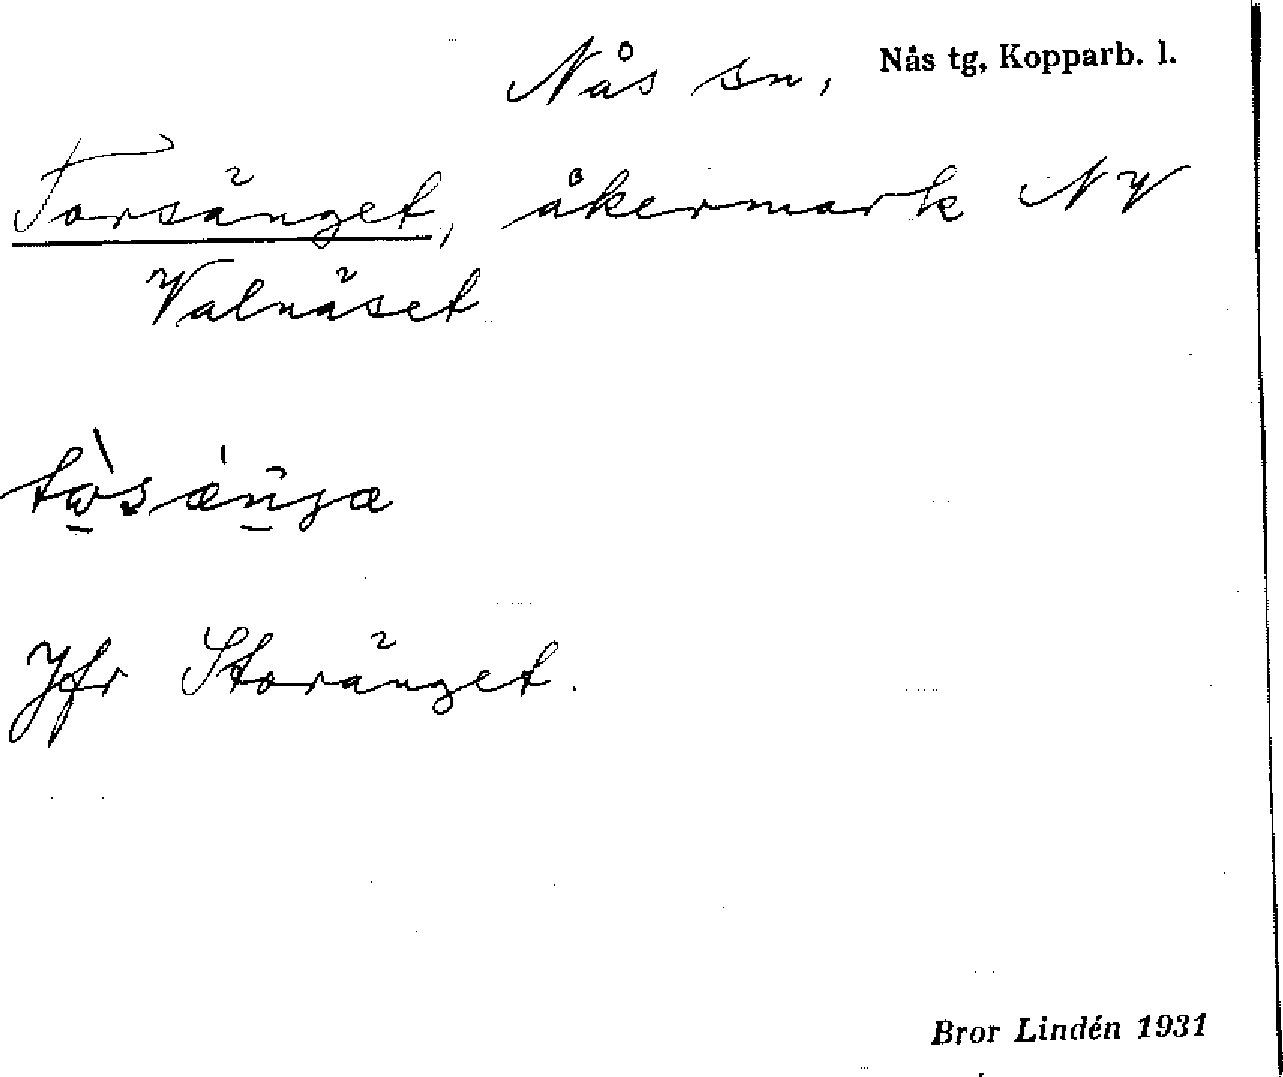 Nås sn, Nås tg, Kopparb. l.
Torsänget, åkermark NV
Valnäset
Jfr Storänget.
Bror Lindén 1931